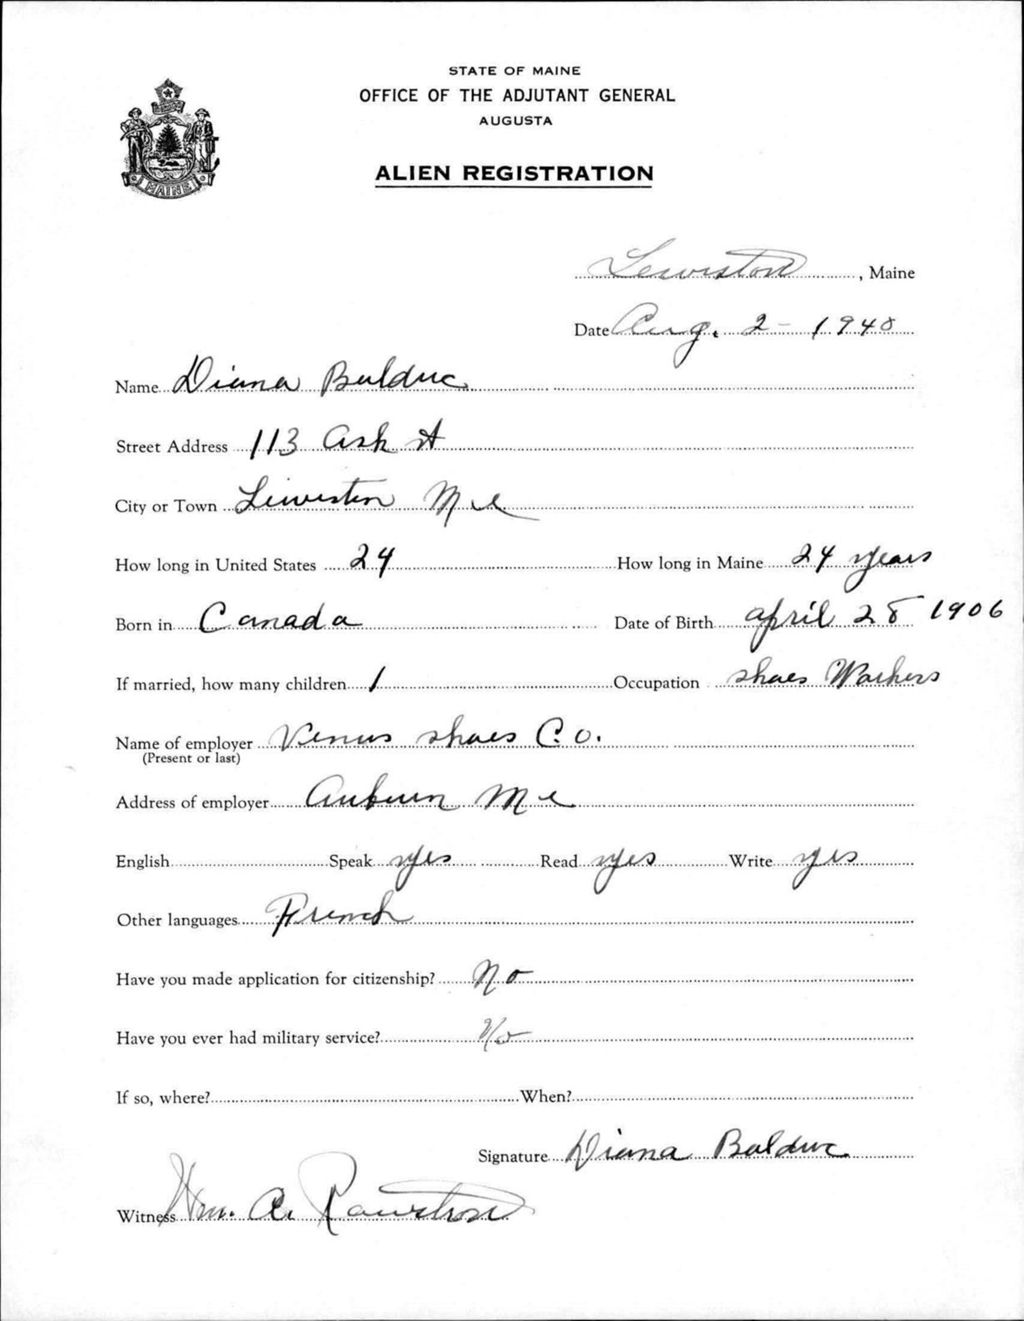 STATE OF MAINE
OFFICE OF THE ADJUTANT GENERAL
AUGUSTA
ALIEN REGISTRATION
MAINE
Lewiston, Maine
Date Aug. 2 - 1940
Name Diana Bolduc
Street Address 113 Ash St
City or Town Lewiston Me
How long in United States 24 How long in Maine 24 years
Born in Canada Date of Birth april 28 1906
If married, how many children 1 Occupation shoes Workers
Name of employer Venus shoes Co.
(Present or last)
Address of employer Auburn Me
English Speak yes Read yes Write yes
Other languages French
Have you made application for citizenship? No
Have you ever had military service? No
If so, where? When?
Signature Diana Bolduc
Witness Wm. A. Rawstron